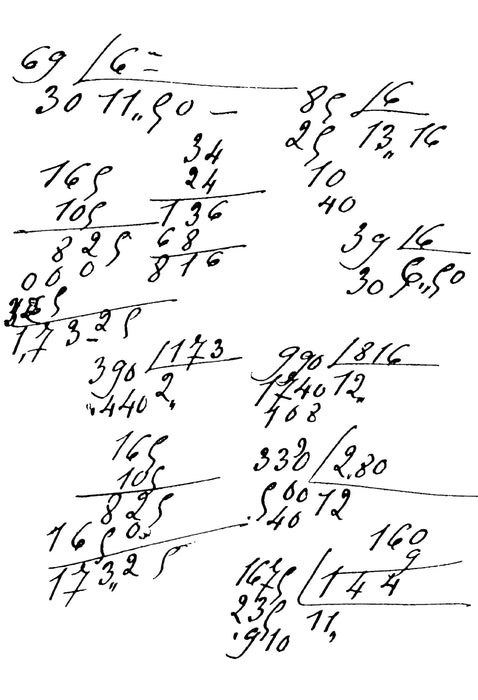 69 6 =
30 11,,50 —
85 6
25 13,,16
10
40
34
24
136
68
816
165
105
825
000
165
1,73-25
39 6
30 6,,50
390 173
,,440 2,,
990 816
1740 12,,
408
165
105
825
1650,,
173,,25
330 2.80
500 12
40
160
9
1675 144
235 11,,
910